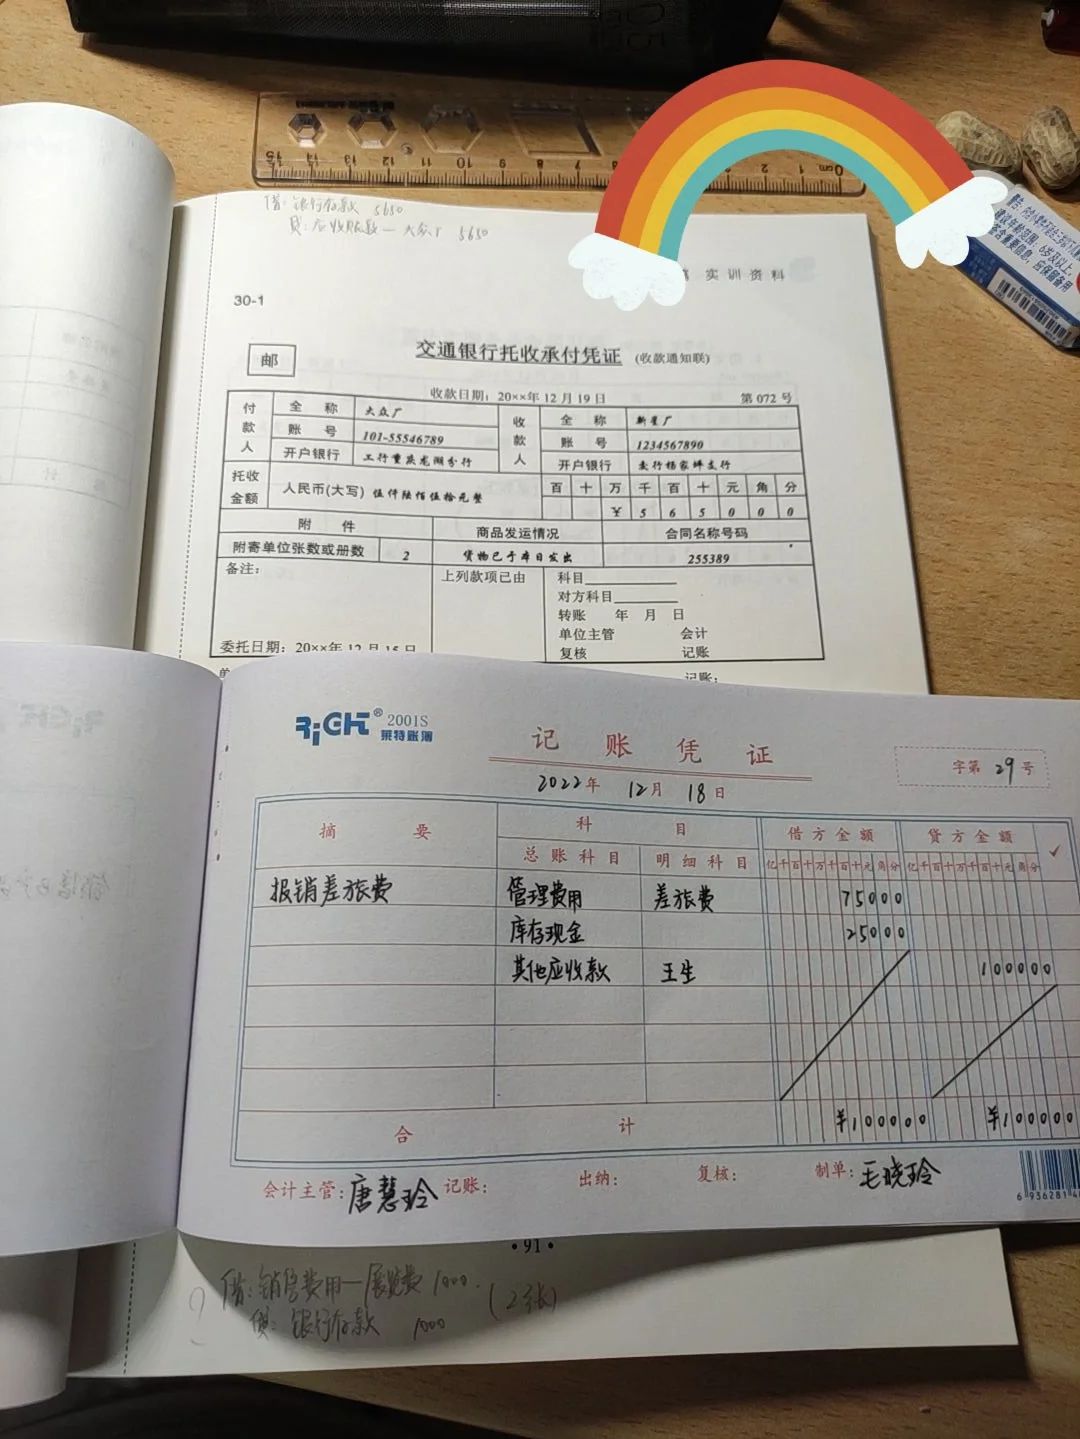 借:银行存款 5650
贷:应收账款—大众厂 5650
实训资料
30-1
邮
交通银行托收承付凭证 (收款通知联)
收款日期: 20××年 12 月 19 日 第 072 号
付款人 全称 大众厂 收款人 全称 新星厂
账号 101-55546789 账号 1234567890
开户银行 工行重庆龙湖分行 开户银行 交行杨家坪支行
托收金额 人民币(大写) 伍仟陆佰伍拾元整 百 十 万 千 百 十 元 角 分
¥ 5 6 5 0 0 0
附件 商品发运情况 合同名称号码
附寄单位张数或册数 2 货物已于本日发出 255389
备注: 上列款项已由 科目
对方科目
转账 年 月 日
单位主管 会计
复核 记账
委托日期: 20××年 12 月 15 日
记账:
RiGHT® 2001S
莱特账簿
记账凭证
2022年 12月 18日
字第 29 号
摘要 科目 借方金额 贷方金额 ✓
总账科目 明细科目 亿千百十万千百十元角分 亿千百十万千百十元角分
报销差旅费 管理费用 差旅费 75000
库存现金 25000
其他应收款 王生 100000
合计 ¥100000 ¥100000
会计主管: 唐慧玲 记账: 出纳: 复核: 制单: 毛晓玲
·91·
借:销售费用—展览费 1000.
(2张)
贷:银行存款 1000